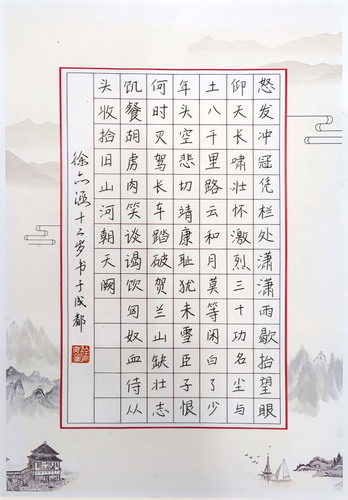 怒发冲冠凭栏处潇潇雨歇抬望眼
仰天长啸壮怀激烈三十功名尘与
土八千里路云和月莫等闲白了少
年头空悲切靖康耻犹未雪臣子恨
何时灭驾长车踏破贺兰山缺壮志
饥餐胡虏肉笑谈渴饮匈奴血侍从
头收拾旧山河朝天阙
徐涵十岁书于成都